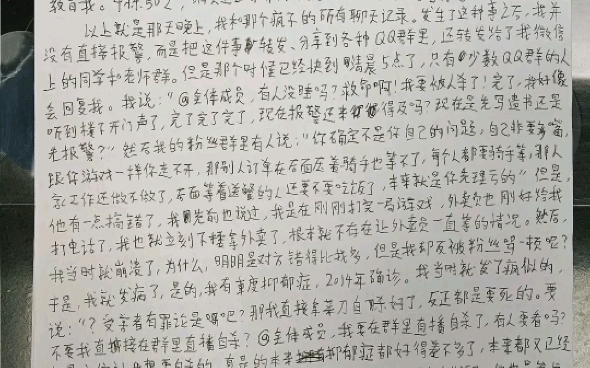 教育我。
以上就是那天晚上，我和那个疯子的所有聊天记录。发生了这种事之后，我并
没有直接报警，而是把这件事转发、分享到各种QQ群里，还转发给了我微信
上的同学和老师群。但是那个时候已经快到凌晨5点了，只有少数QQ群的人
会回复我。我说："@全体成员，有人没睡吗？救命啊！我要被人杀了！完了，我好像
听到楼下开门声了，完了完了完了，现在报警还来得及吗？现在是先写遗书还是
先报警？"然后我的粉丝群里有人说："你确定不是你自己的问题，自己非要多嘴，
跟你游戏一样你走不开，那别人订单在后面压着骑手也等不了，每个人都要骑手等，那人
家工作还做不做了，后面等着送餐的人还要不要吃饭了，本来就是你卖理亏的"但是，
他有一点搞错了，我先前也说过，我是在刚刚打完一局游戏，外卖员也刚好给我
打电话了，我也就立刻下楼拿外卖了，根本就不存在让外卖员一直等的情况。然后，
我当时就崩溃了，为什么，明明是对方错得比我多，但是我却反被粉丝骂一顿呢？
于是，我就发病了，是的，我有重度抑郁症，2014年确诊。我当时就发了疯似的，
说："？受害者有罪论是吧？那我直接拿菜刀自杀好了，反正都是要死的。要
不要我直接在群里直播自杀？@全体成员，我要在群里直播自杀了，有人要看吗？
真是的本来抑郁症都好得差不多了，本来都又已经